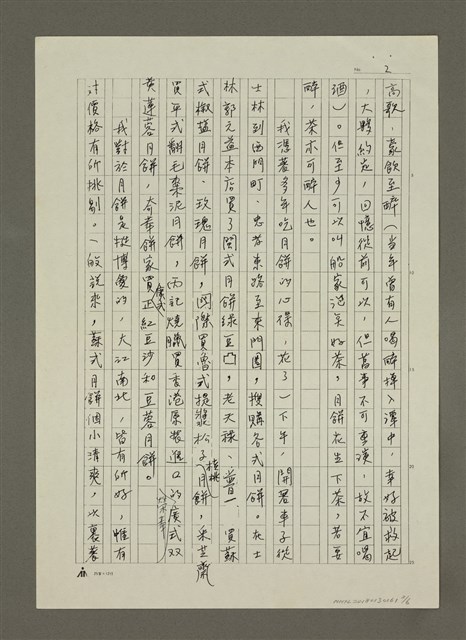 2
高歌,豪飲至醉(當年曾有人喝醉摔入潭中,幸好被救起
,大夥約定,回憶從前可以,但舊事不可重演,故不宜喝
酒)。但至少可以叫船家泡泉好茶,月餅在生下茶,若要
醉,茶亦可醉人也。
我憑著多年吃月餅的心得,花了一下午,開著車子從
士林到西門町、忠孝東路至東門圈,搜購各式月餅。在士
林郭元益本店買了閩式月餅綠豆凸,老大祿、普一買蘇
式椒鹽月餅、玫瑰月餅,國際買魯式提漿松子核桃月餅,采芝齋
買平式翻毛棗泥月餅,丙記燒臘買香港原裝進口的榮華廣式双
黃蓮蓉月餅,奇華餅家買廣式正紅豆沙和豆蓉月餅。
我對於月餅是挺博愛的,大江南北,皆有所好,惟有
計價格有所挑剔。一般說來,蘇式月餅個小清爽,火裹著